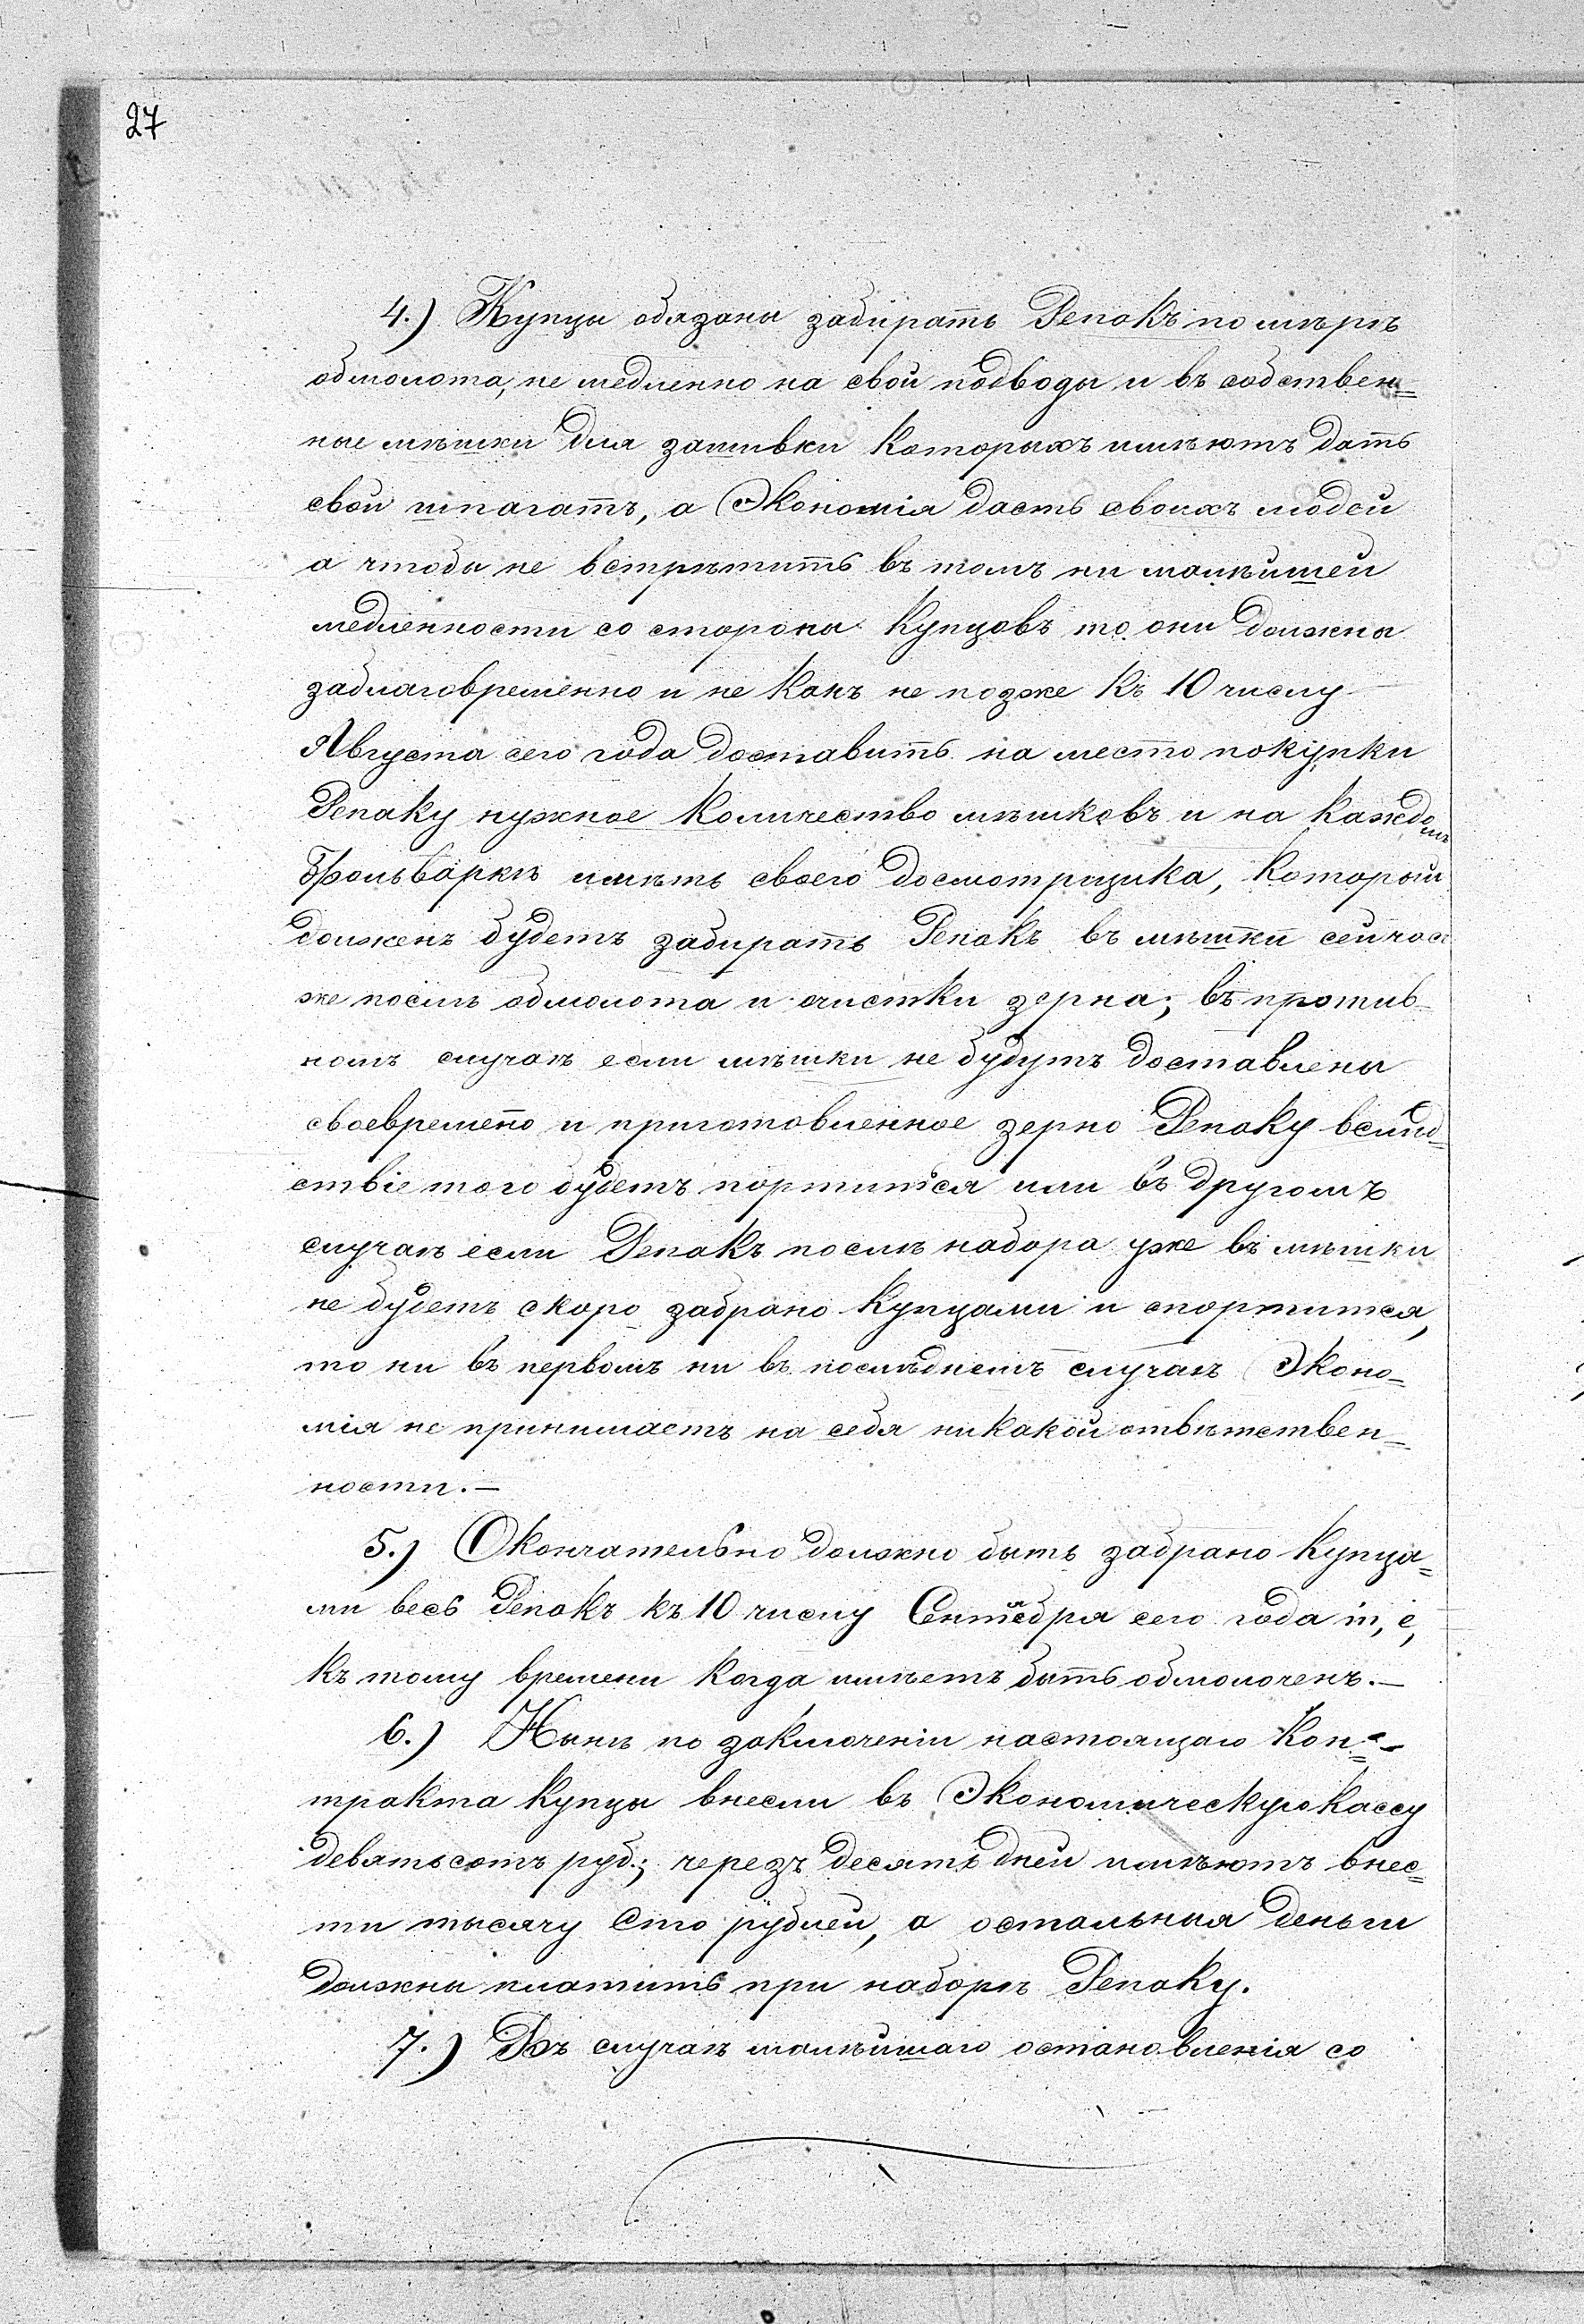 27
4.) Купцы обязаны забирать Репакъ по мѣрѣ
обмолота, не медленно на свои подводы и въ собствен=
ные мѣшки для зашивки которыхъ имѣютъ дать
свой шпагатъ, а Экономія дастъ своихъ людей
а чтобы не встрѣтить въ томъ ни малѣйшей
медленности со стороны Купцовъ то они должны
заблаговременно и не какъ не позже къ 10 числу
Августа сего года доставить на место покупки
Репаку нужное количество мѣшковъ и на каждомъ
Фольваркѣ имѣть своего досмотрщика, который
долженъ будетъ забирать Репакъ въ мѣшки сейчасъ
же послѣ обмолота и очистки зерна; въ против-
номъ случаѣ если мѣшки не будутъ доставлены
своевремено и приготовленное зерно Репаку вслѣд=
ствіе того будетъ портиться или въ другомъ
случаѣ если Репакъ послѣ набора уже въ мѣшки
не будетъ скоро забрано Купцами и спортится,
то ни въ первомъ ни въ послѣднемъ случаѣ Эконо=
мія не принимаетъ на себя никакой отвѣтствен=
ности.—
5.) Окончательно должно быть забрано Купца=
ми весь Репакъ къ 10 числу Сентября сего года т, е,
къ тому времени когда имѣетъ быть обмолоченъ.—
6.) Нынѣ по заключеніи настоящаго Кон=
тракта Купцы внесли въ Экономическую Кассу
девятьсотъ руб.; черезъ десять дней имѣютъ внес=
ти тысячу сто рублей, а остальныя деньги
должны платить при наборѣ Репаку.
7.) Въ случаѣ малѣйшаго остановленія со